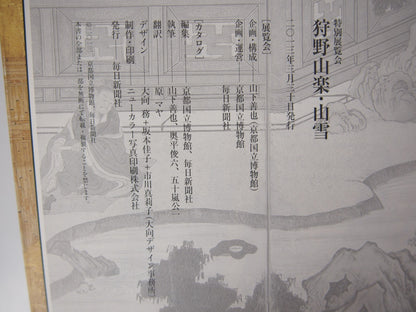 特別展覧会
狩野山楽・山雪
二〇一三年三月三十日発行
［展覧会］
企画・構成 山下善也（京都国立博物館）
企画・運営 京都国立博物館
毎日新聞社
［カタログ］
編集 京都国立博物館、毎日新聞社
執筆 山下善也、奥平俊六、五十嵐公一
翻訳 原 マヤ
デザイン 大向 務＋坂本佳子＋市川真莉子（大向デザイン事務所）
制作・印刷 ニューカラー写真印刷株式会社
発行 毎日新聞社
京都国立博物館、毎日新聞社
本書の全部または一部を無断にて転載・複製することを禁じます。